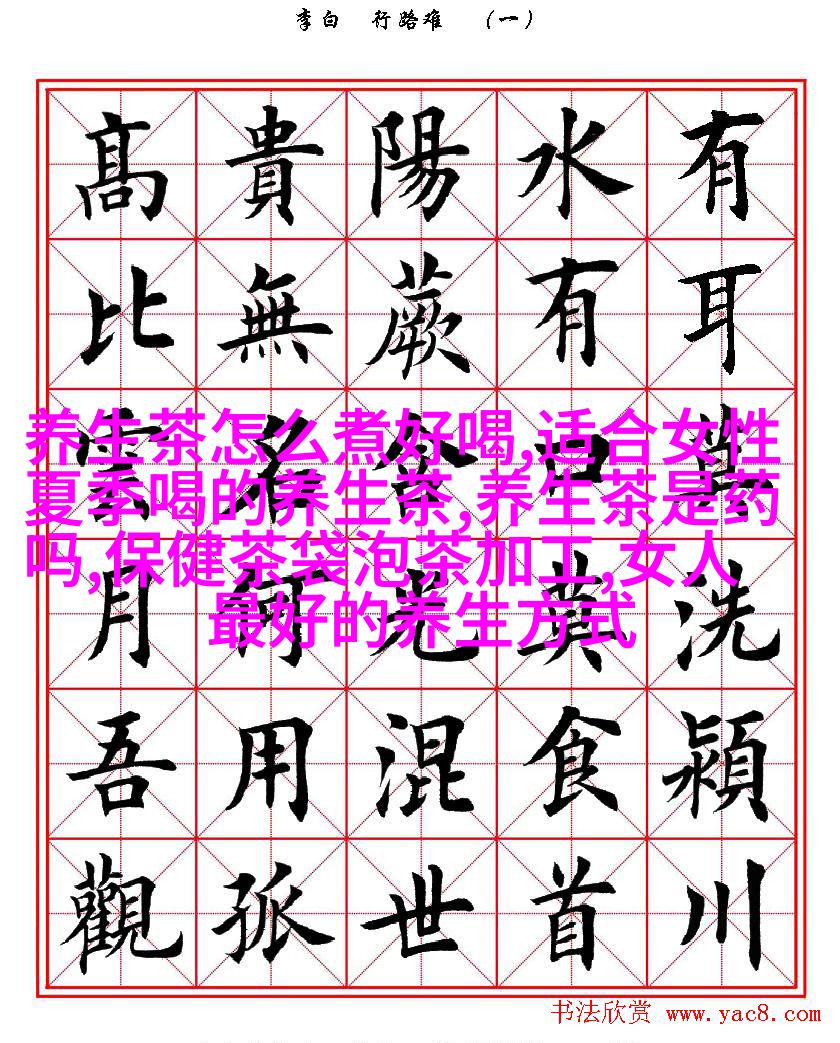 李白 行路难 （一）
有耳莫洗潁川
水有口莫食首
陽蕨含光混世
貴無名何用孤
高比雲月吾觀
养生茶怎么煮好喝,适合女性
夏季喝的养生茶,养生茶是药
吗,保健茶袋泡茶加工,女人
最好的养生方式
书法欣赏 www.yac8.com